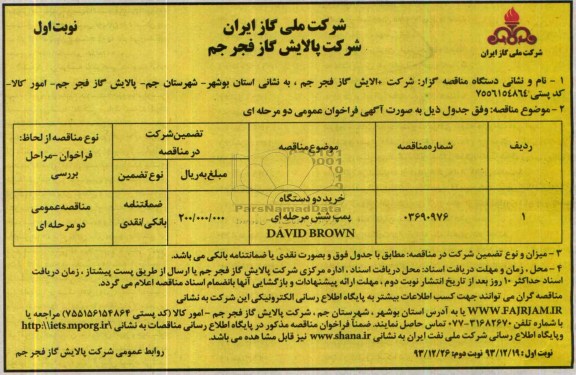 شرکت ملی گاز ایران
شرکت پالایش گاز فجر جم
نوبت اول
شرکت ملی گاز ایران
۱ - نام و نشانی دستگاه مناقصه گزار: شرکت پالایش گاز فجر جم ، به نشانی استان بوشهر- شهرستان جم- پالایش گاز فجر جم- امور کالا-
کد پستی ۷۵۵۶۱۵۴۸۶۴
۲ - موضوع مناقصه: وفق جدول ذیل به صورت آگهی فراخوان عمومی دو مرحله ای
ردیف
شماره مناقصه
موضوع مناقصه
تضمین شرکت در مناقصه
مبلغ به ریال
نوع تضمین
نوع مناقصه از لحاظ: فراخوان - مراحل بررسی
۱
۰۳۶۹۰۹۷۶
خرید دو دستگاه
پمپ شش مرحله ای
DAVID BROWN
۲۰۰/۰۰۰/۰۰۰
ضمانتنامه
بانکی/نقدی
مناقصه عمومی
دو مرحله ای
ParsNamadData
۳ - میزان و نوع تضمین شرکت در مناقصه: مطابق با جدول فوق و بصورت نقدی یا ضمانتنامه بانکی می باشد.
۴ - محل ، زمان و مهلت دریافت اسناد: محل دریافت اسناد ، اداره مرکزی شرکت پالایش گاز فجر جم یا ارسال از طریق پست پیشتاز . زمان دریافت
اسناد حداکثر ۱۰ روز بعد از تاریخ انتشار نوبت دوم ، مهلت ارائه پیشنهادات و بازگشایی آنها بانضمام اسناد مناقصه اعلام می گردد.
مناقصه گران می توانند جهت کسب اطلاعات بیشتر به پایگاه اطلاع رسانی الکترونیکی این شرکت به نشانی
WWW.FAJRJAM.IR یا به آدرس استان بوشهر ، شهرستان جم ، شرکت پالایش گاز فجر جم - امور کالا (کد پستی ۷۵۵۱۵۶۱۵۴۸۶۴) مراجعه یا
با شماره تلفن ۳۱۶۸۲۶۷۰-۰۷۷ تماس حاصل نمایند. ضمناً فراخوان مناقصه مذکور در پایگاه اطلاع رسانی مناقصات به نشانی http:\\iets.mporg.ir\
و پایگاه اطلاع رسانی شرکت ملی نفت ایران به نشانی www.shana.ir نیز قابل مشاهده می باشد.
نوبت اول : ۹۳/۱۲/۱۹ نوبت دوم: ۹۳/۱۲/۲۶
روابط عمومی شرکت پالایش گاز فجر جم